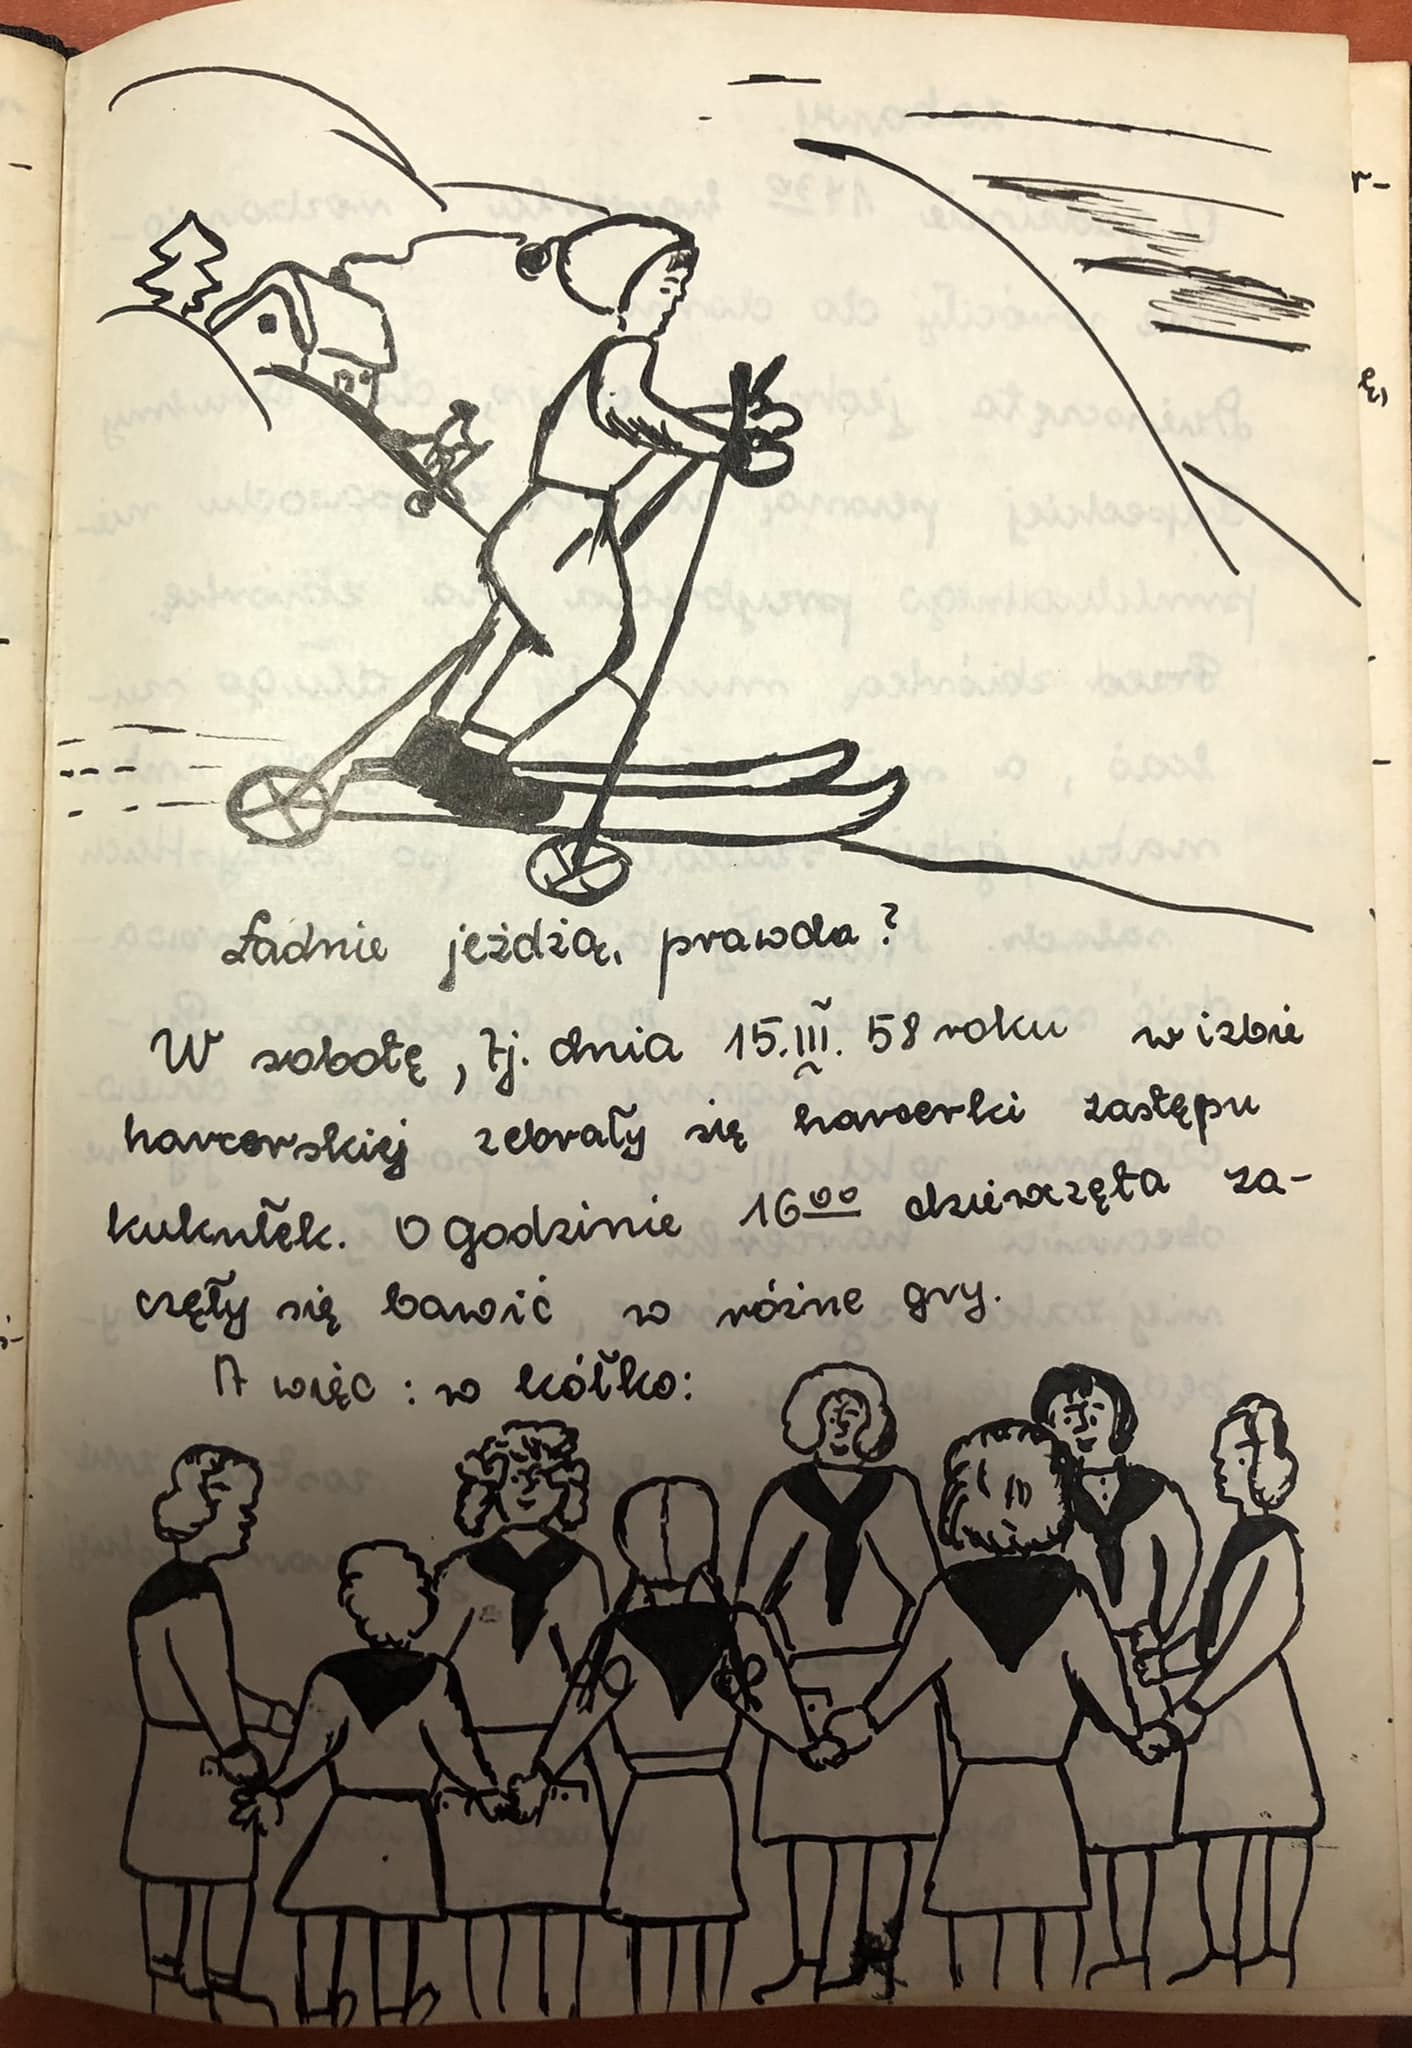 Ładnie jeżdżą, prawda?
W sobotę, tj. dnia 15.III. 58 roku w izbie
harcerskiej zebrały się harcerki zastępu
kukułek. O godzinie 16⁰⁰ dziewczęta za-
częły się bawić w różne gry.
A więc: w kółko: